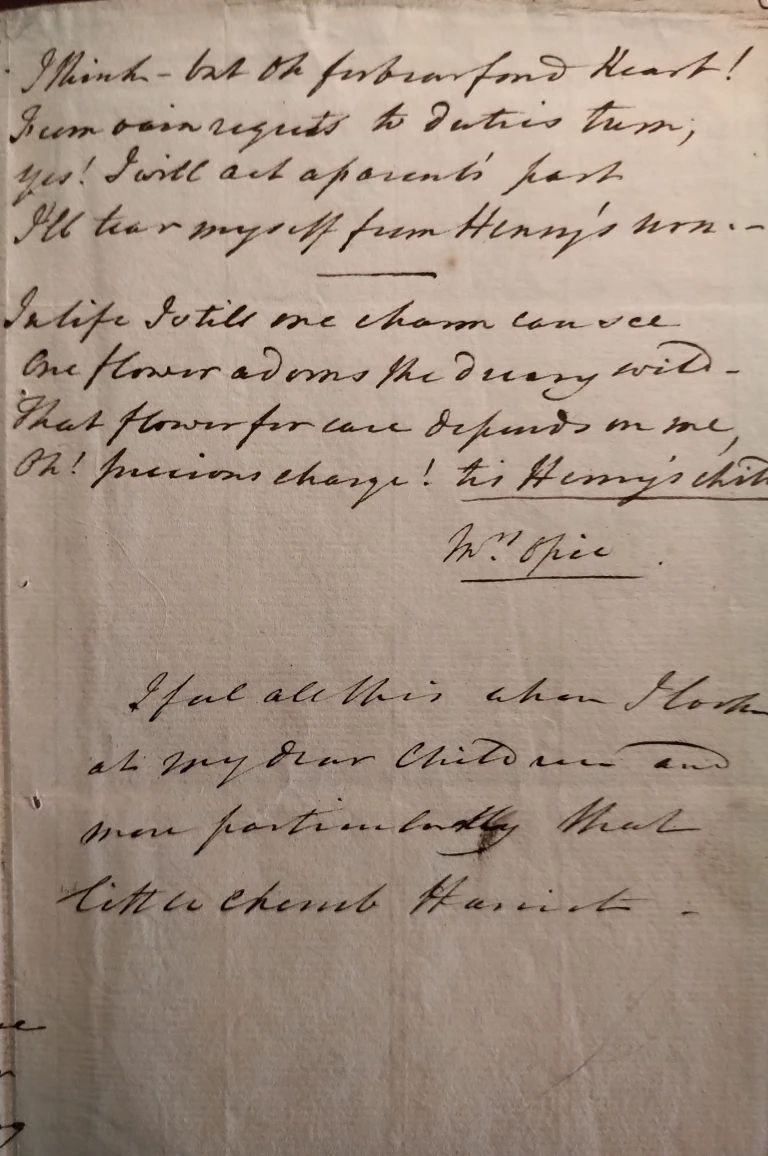 I think - but Oh forbear fond Heart!
From vain regrets to duties turn,
yes! I will act a parent's part
I'll tear myself from Henry's urn. -
In life I still one charm can see
One flower adorns the dreary wild -
That flower for care depends on me,
Oh! precious charge! tis Henry's child
Mrs. Opie .
I feel all this when I look
at my dear Children and
more particularly that
little cherub Harriet -